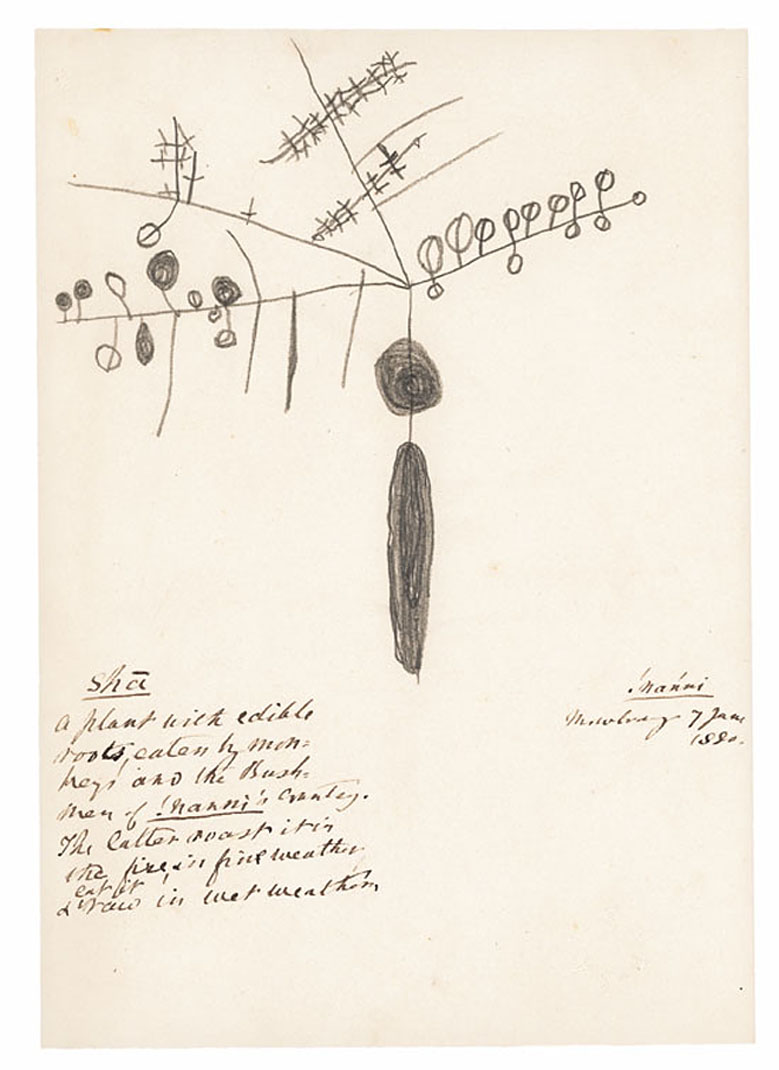 shā
A plant with edible
roots, eaten by mon-
keys and the Bush-
men of !nanni's country.
The latter roast it in
the fire, in fine weather
eat it
& raw in wet weather.
!nanni
Mowbray 7 June
1880.